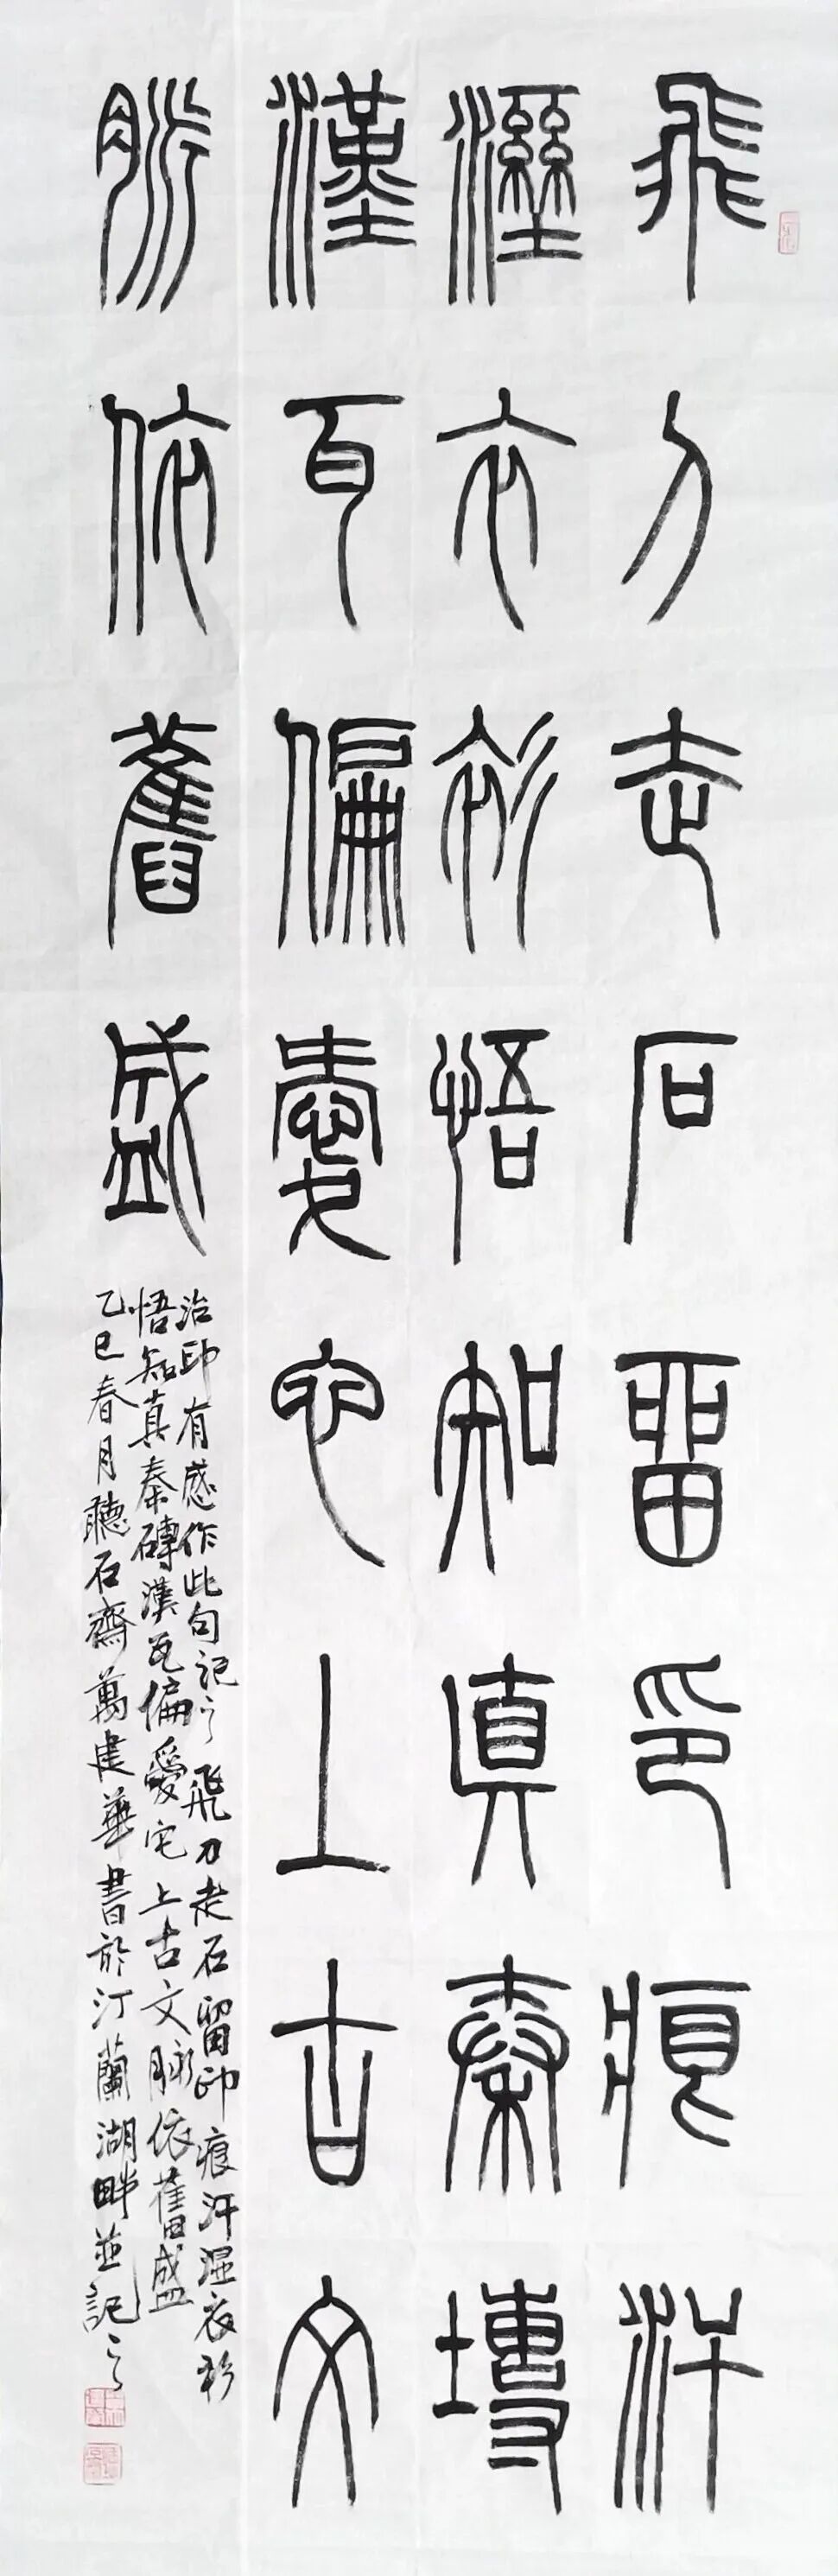 飛刀走石留印痕汗
濕衣衫悟知真秦塼
漢瓦偏愛它上古文
脈依舊盛
治印有感作此句記之飛刀走石留印痕汗濕衣衫
悟知真秦磚漢瓦偏愛它上古文脈依舊盛
乙巳春月聽石齋萬建華書於汀蘭湖畔並記之